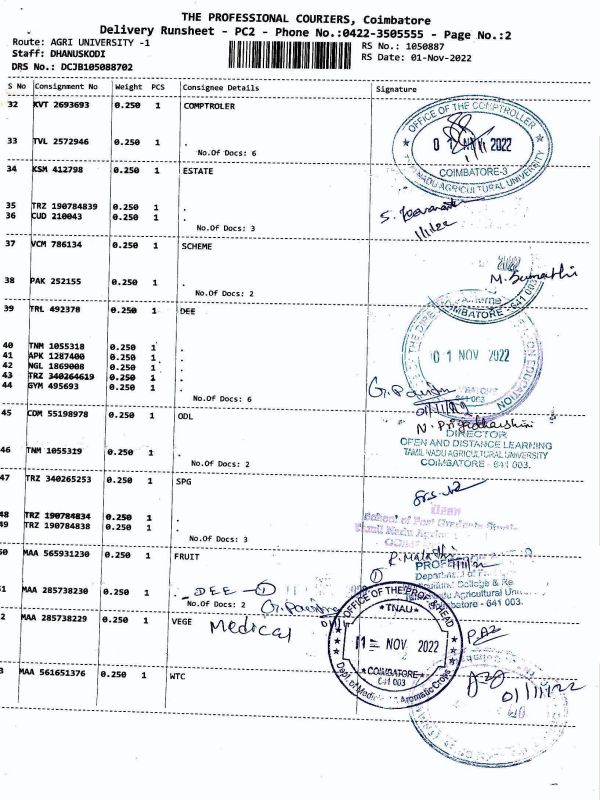 THE PROFESSIONAL COURIERS, Coimbatore
Delivery Runsheet - PC2 - Phone No.:0422-3505555 - Page No.:2
Route: AGRI UNIVERSITY -1
RS No.: 1050887
Staff: DHANUSKODI
RS Date: 01-Nov-2022
DRS No.: DCJB105088702
S No Consignment No Weight PCS Consignee Details Signature
32 KVT 2693693 0.250 1 COMPTROLER
OFFICE OF THE COMPTROLLER
01 NOV 2022
COIMBATORE-3
TAMILNADU AGRICULTURAL UNIVERSITY
33 TVL 2572946 0.250 1 .
No.Of Docs: 6
34 KSM 412798 0.250 1 ESTATE
35 TRZ 190784839 0.250 1 .
36 CUD 210043 0.250 1 .
No.Of Docs: 3
1/11/22
37 VCM 786134 0.250 1 SCHEME
2022
M. Sumathi
38 PAK 252155 0.250 1 .
No.Of Docs: 2
COIMBATORE - 641 003
39 TRL 492378 0.250 1 DEE
01 NOV 2022
40 TNM 1055318 0.250 1 .
41 APK 1287400 0.250 1 .
42 NGL 1869008 0.250 1 .
43 TRZ 340264619 0.250 1 .
44 GYM 495693 0.250 1 .
No.Of Docs: 6
641 003
01/11/22
45 CDM 55198978 0.250 1 ODL
N. Priyadharshini
DIRECTOR
OPEN AND DISTANCE LEARNING
TAMIL NADU AGRICULTURAL UNIVERSITY
COIMBATORE - 641 003.
46 TNM 1055319 0.250 1 .
No.Of Docs: 2
47 TRZ 340265253 0.250 1 SPG
Dean
School of Post Graduate
Tamil Nadu
48 TRZ 190784834 0.250 1 .
49 TRZ 190784838 0.250 1 .
No.Of Docs: 3
50 MAA 565931230 0.250 1 FRUIT
R. Malathi
1/11/22
PROF
Agricultural College & Re
Agricultural
Coimbatore - 641 003.
51 MAA 285738230 0.250 1 .
DEE - 1
No.Of Docs: 2
52 MAA 285738229 0.250 1 VEGE
Medical
OFFICE OF THE PROF. & HEAD
*TNAU*
01 NOV 2022
*COIMBATORE*
641 003
Dept. of Medicinal Aromatic Crops
53 MAA 561651376 0.250 1 WTC
01/11/22